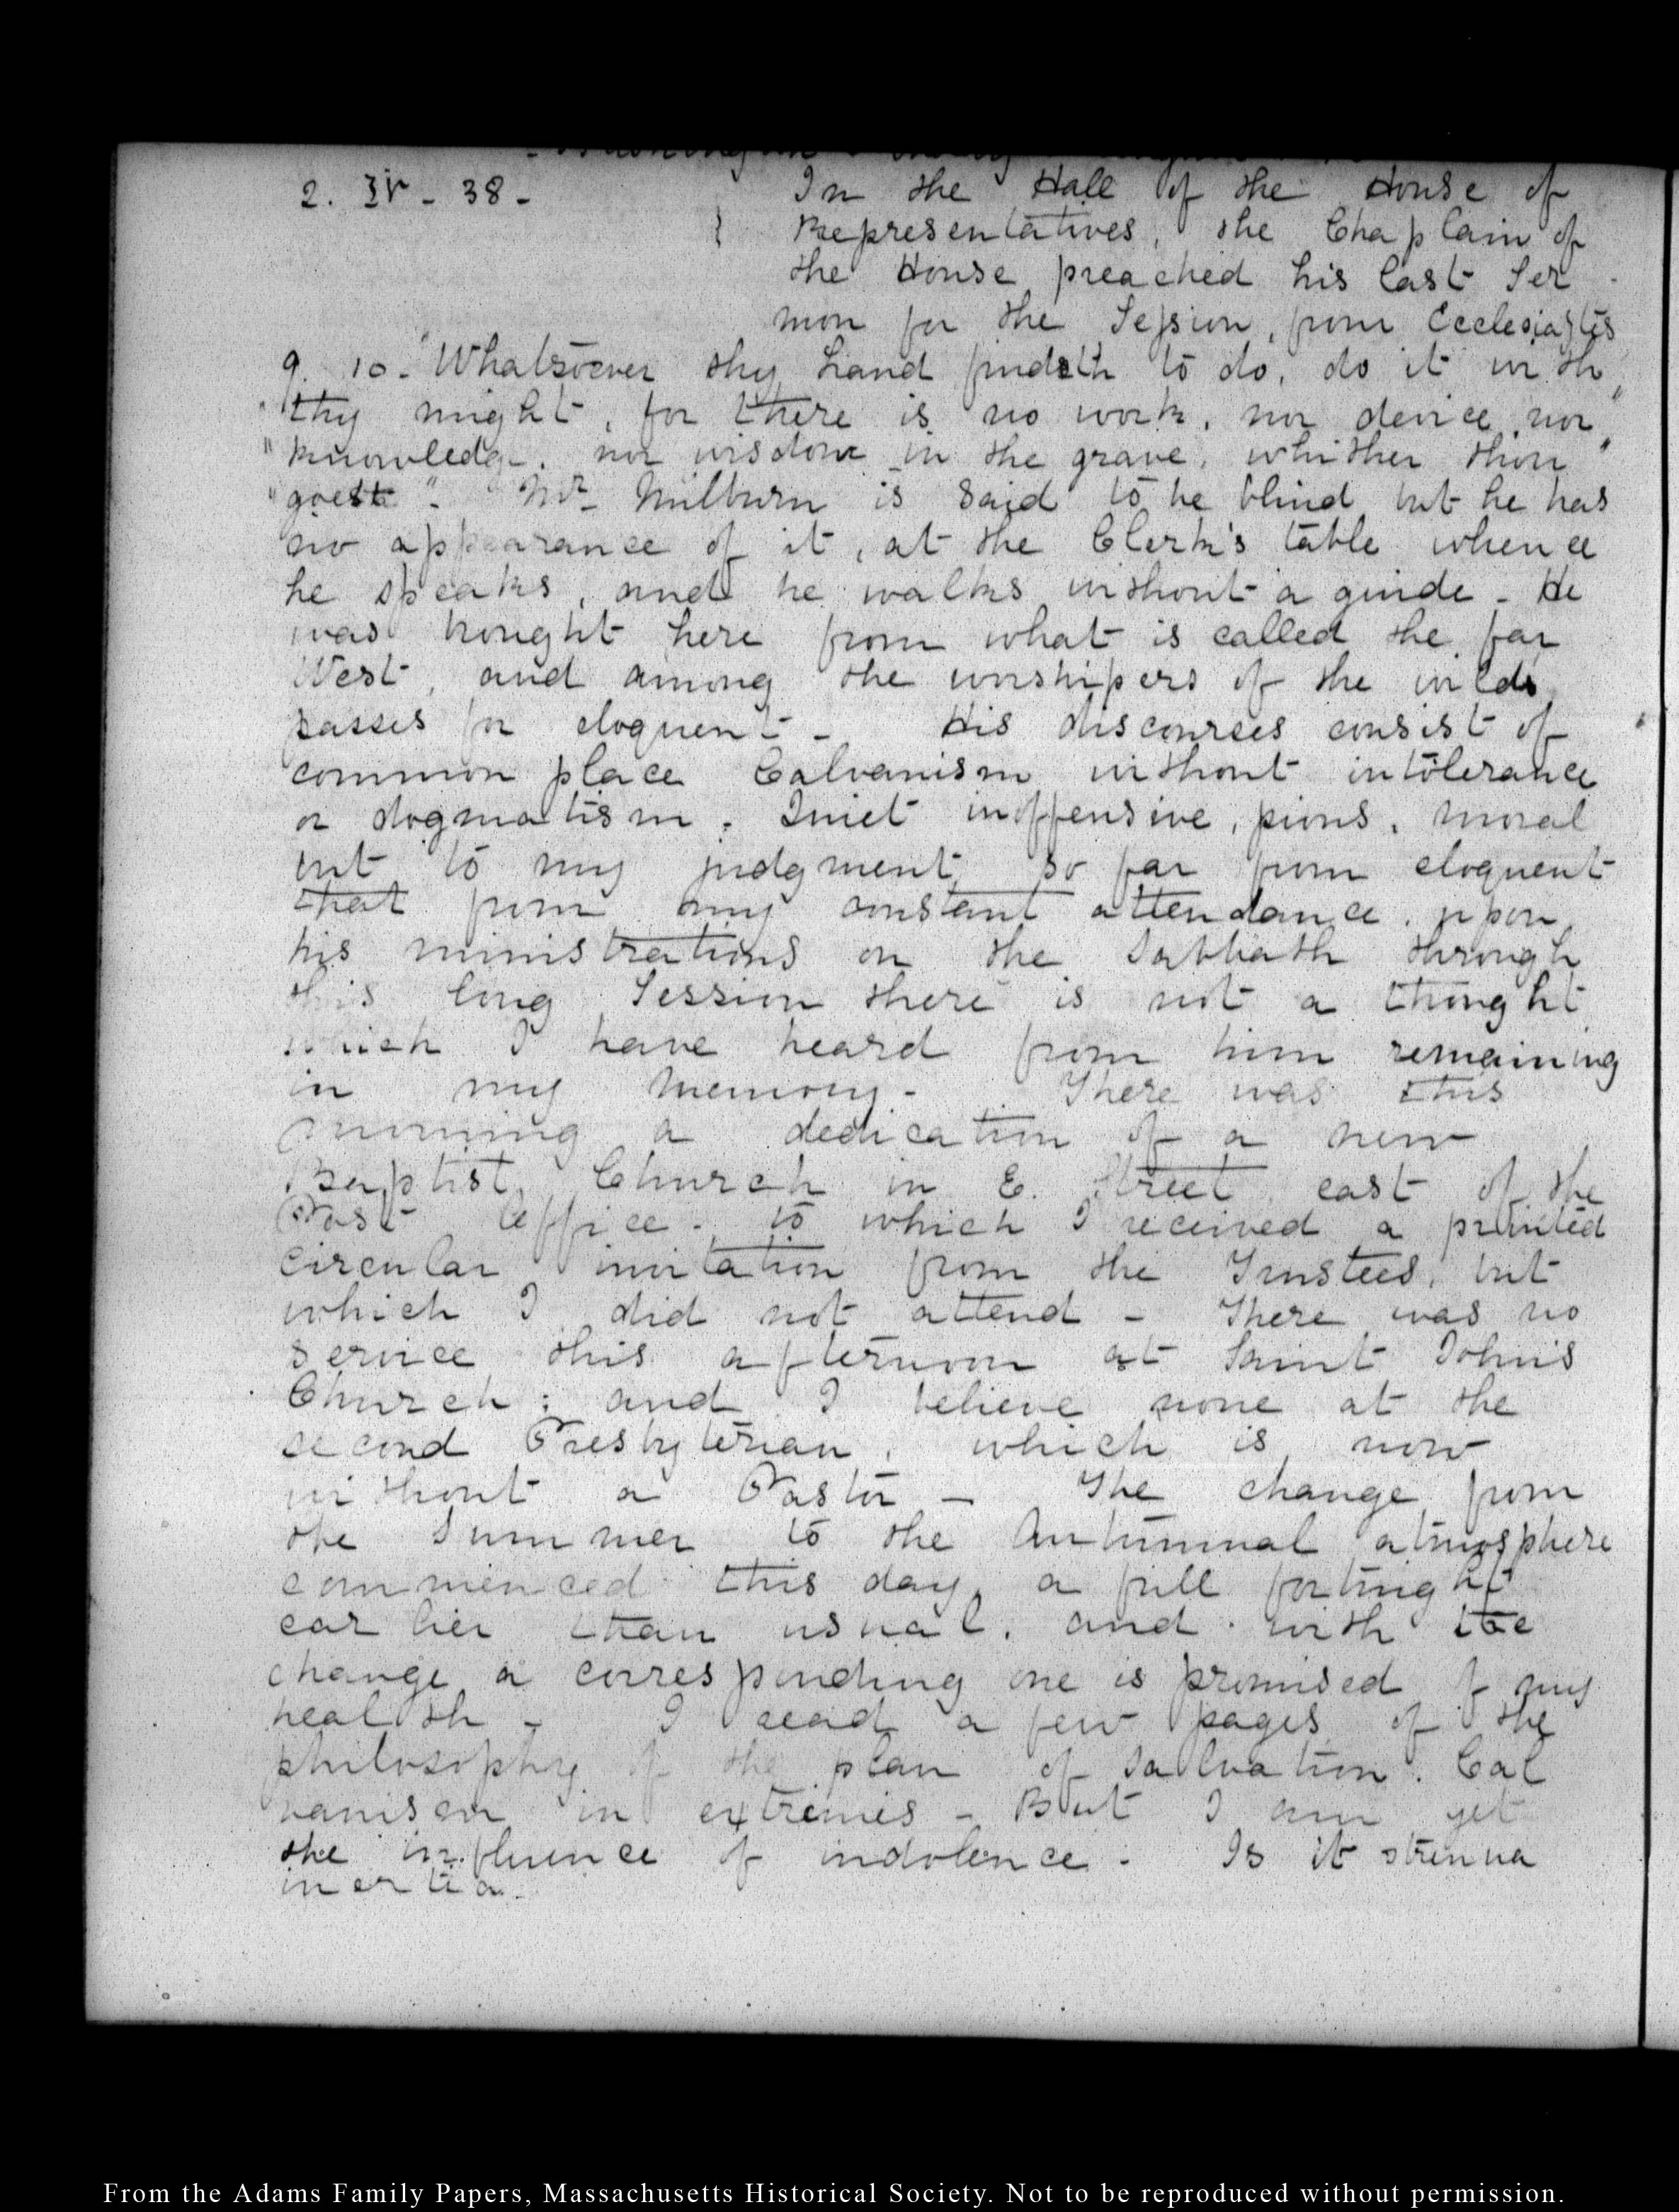 2. IV - 38 -
In the Hall of the House of
Representatives, the Chaplain of
the House preached his last Ser
mon for the Session, from Ecclesiastes
9. 10. "Whatsoever thy hand findeth to do, do it with
"thy might, for there is no work, nor device, nor"
"knowledge, nor wisdom in the grave, whither thou"
"goest". Mr. Milburn is said to be blind but he has
no appearance of it, at the Clerk's table whence
he speaks, and he walks without a guide - He
was brought here from what is called the far
West, and among the worshipers of the wilds
passes for eloquent - His discourses consist of
common place Calvanism without intolerance
or dogmatism. Quiet inoffensive, pious, moral
but to my judgment so far from eloquent
that from my constant attendance upon
his ministrations on the Sabbath through
this long Session there is not a thought
which I have heard from him remaining
in my memory - There was this
morning a dedication of a new
Baptist Church in E. Street east of the
Post Office, to which I received a printed
circular invitation from the Trustees, but
which I did not attend - There was no
service this afternoon at Saint John's
Church; and I believe none at the
second Presbyterian, which is now
without a Pastor - The change from
the Summer to the Autumnal atmosphere
commenced this day, a full fortnight
earlier than usual, and with the
change a corresponding one is promised of my
health - I read a few pages of the
philosophy of the plan of Salvation. Cal
vanism in extremis - But I am yet
the influence of indolence - Is it strenua
inertia.
From the Adams Family Papers, Massachusetts Historical Society. Not to be reproduced without permission.